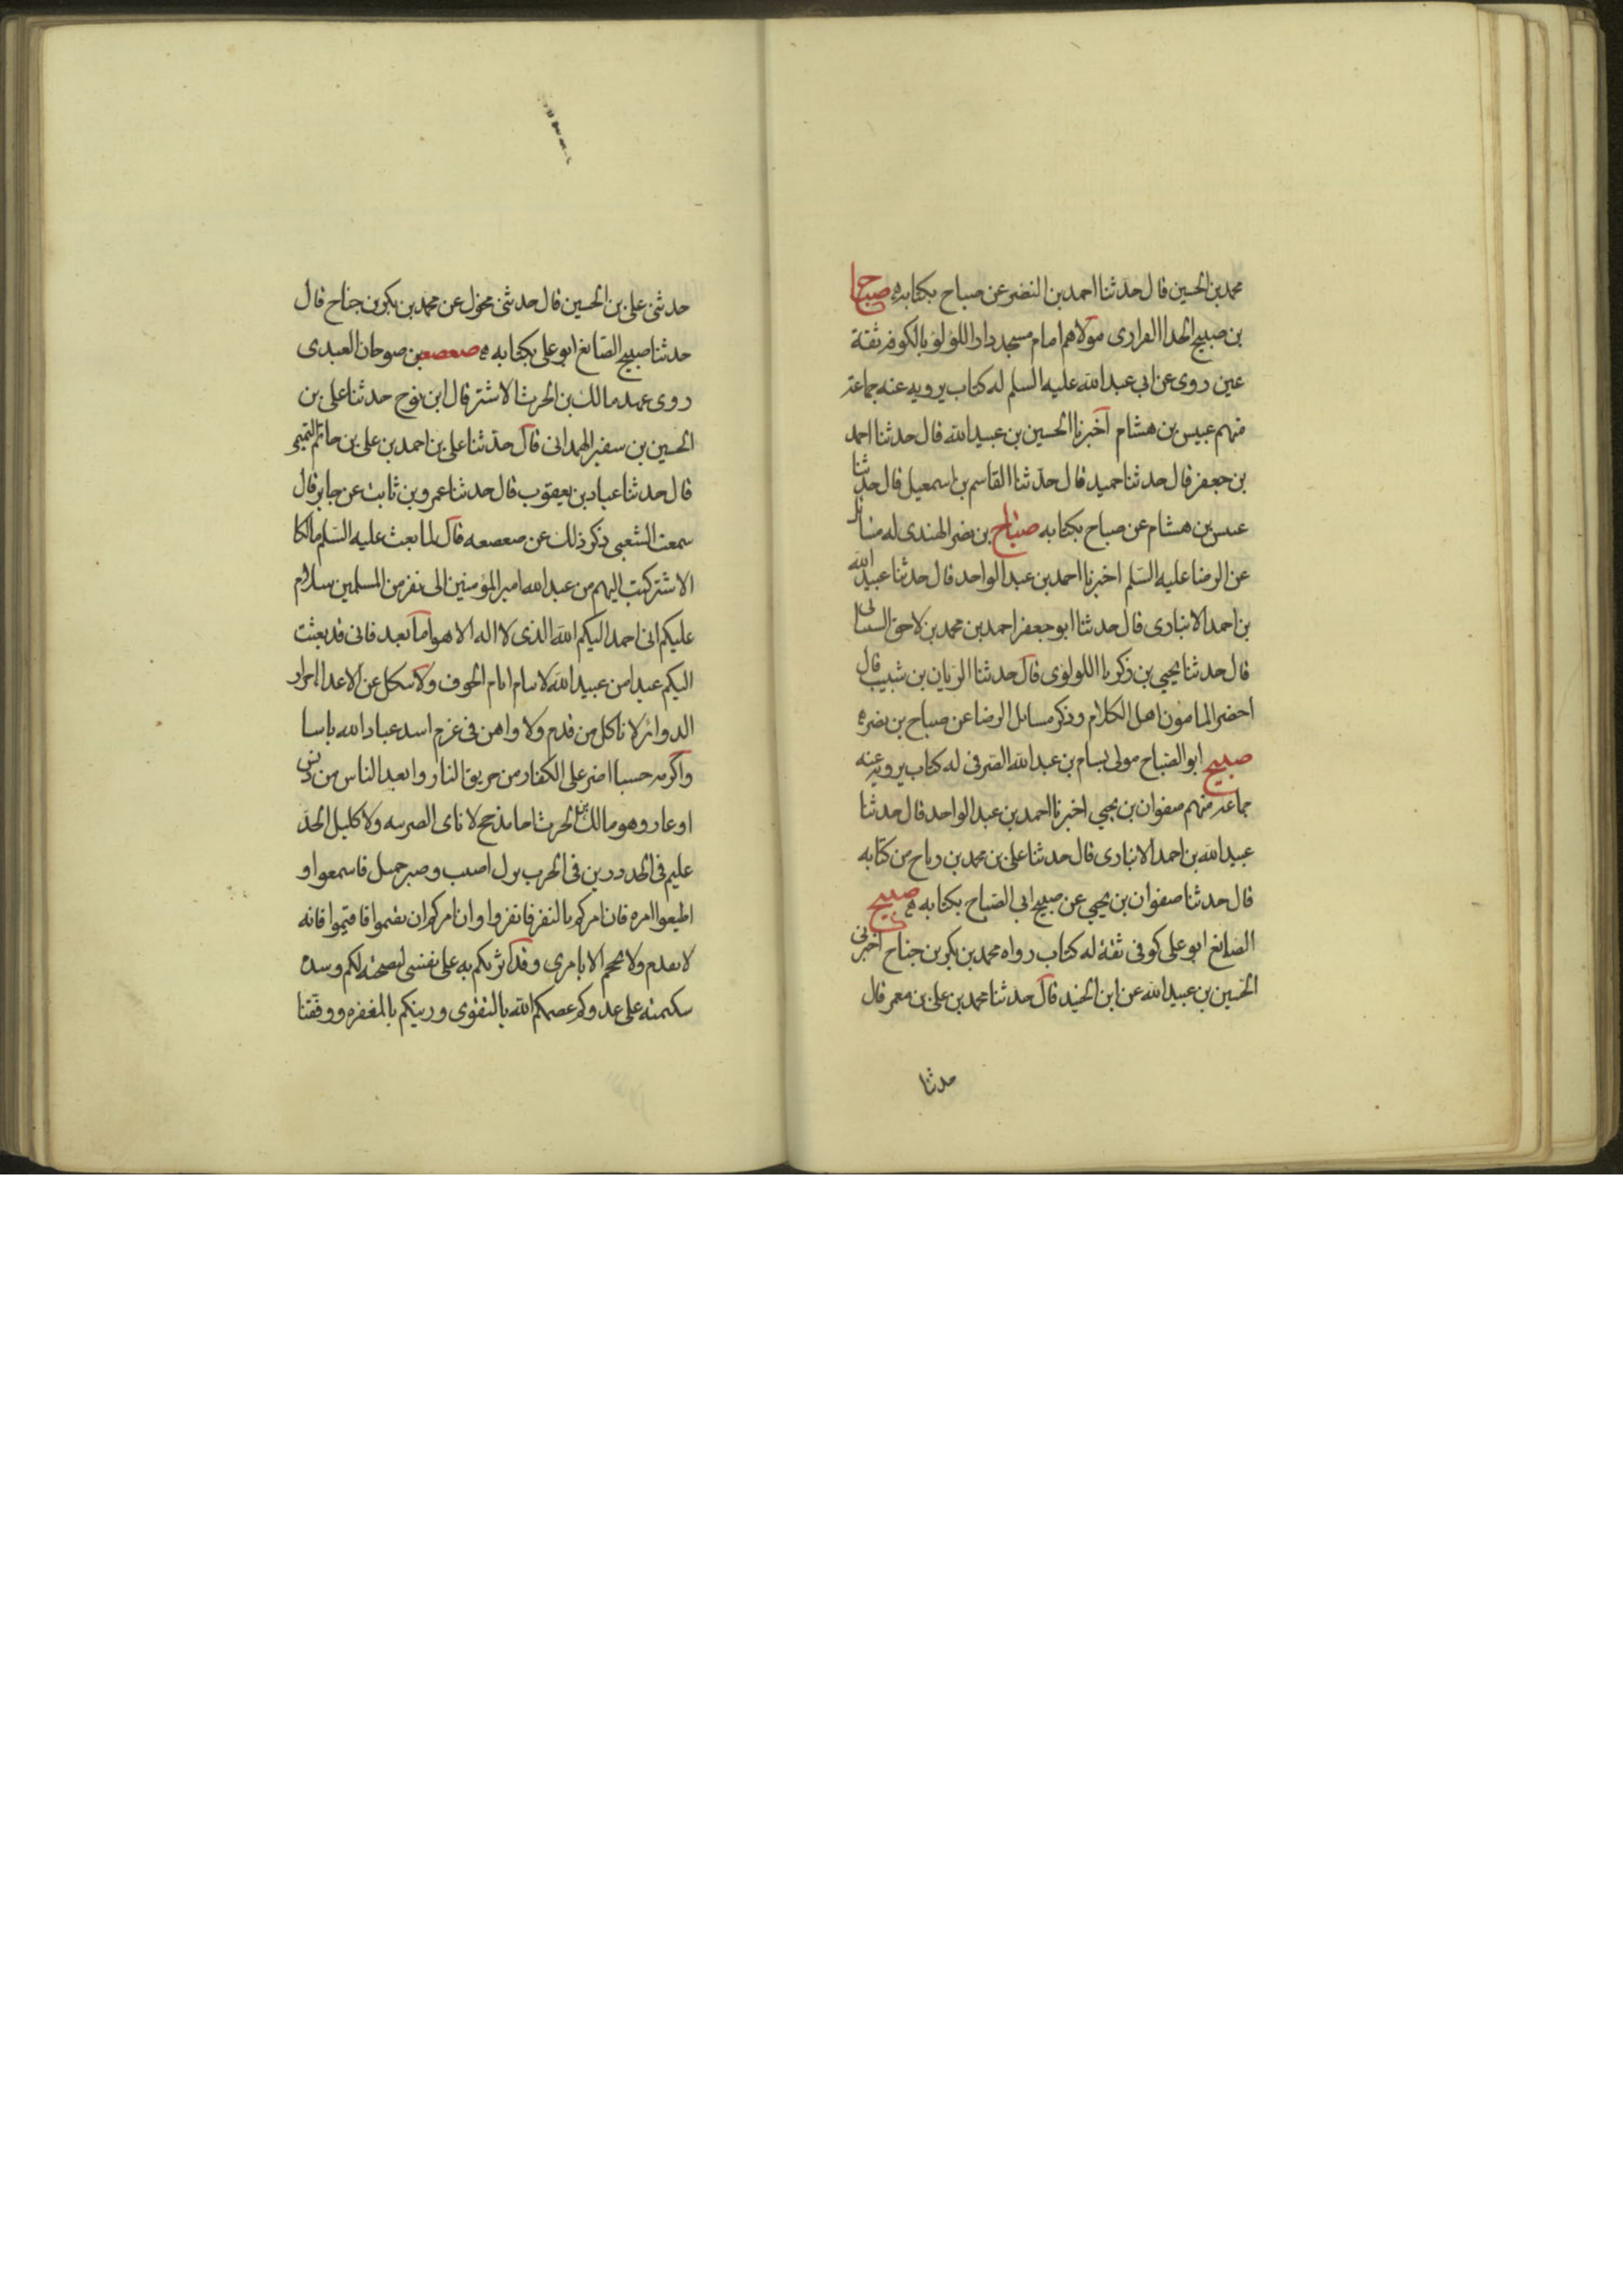 محمد بن الحسين قال حدثنا احمد بن النضر عن صباح بكتابه صباح
بن صبيح الحذا الفزارى مولاهم امام مسجد دار اللؤلؤ بالكوفة ثقة
عين روى عن ابى عبد الله عليه السلم له كتاب يرويه عنه جماعة
منهم عبيس بن هشام اخبرنا الحسين بن عبيد الله قال حدثنا احمد
بن جعفر قال حدثنا حميد قال حدثنا القاسم بن اسمعيل قال حدثنا
عبيس بن هشام عن صباح بكتابه صباح بن نضر الهندى له مسائل
عن الرضا عليه السلم اخبرنا احمد بن عبد الواحد قال حدثنا عبيد الله
بن احمد الانبارى قال حدثنا ابو جعفر احمد بن محمد بن لاحق
قال حدثنا يحيى بن زكريا اللولوى قال حدثنا الريان بن شبيب قال
احضر المامون اهل الكلام وذكر مسائل الرضا عن صباح بن نضر
صبيح ابو الصباح مولى بسام بن عبد الله الصرفى له كتاب يرويه عنه
جماعة منهم صفوان بن يحيى اخبرنا احمد بن عبد الواحد قال حدثنا
عبيد الله بن احمد الانبارى قال حدثنا على بن محمد بن رباح من كتابه
قال حدثنا صفوان بن يحيى عن صبيح ابى الصباح بكتابه صبيح
الصائغ ابو على كوفى ثقة له كتاب رواه محمد بن بكر بن جناح اخبرنى
الحسين بن عبيد الله عن ابن الجنيد قال حدثنا محمد بن على بن معمر قال
حدثنا
حدثنى على بن الحسين قال حدثنى مخول عن محمد بن بكر بن جناح قال
حدثنا صبيح الصائغ ابو على بكتابه صعصعه بن صوحان العبدى
روى عهد مالك بن الحرث الاشتر قال ابن نوح حدثنا على بن
الحسين بن سفير الهمدانى قال حدثنا على بن احمد بن على بن حاتم التميمى
قال حدثنا عباد بن يعقوب قال حدثنا عمرو بن ثابت عن جابر قال
سمعت الشعبى ذكر ذلك عن صعصعه قال لما بعث عليه السلم مالكا
الاشتر كتب اليهم من عبد الله امير المؤمنين الى نفر من المسلمين سلام
عليكم انى احمد اليكم الله الذى لا اله الا هو اما بعد فانى قد بعثت
اليكم عبدا من عبيد الله لا ينام ايام الخوف ولا ينكل عن الاعداء حراز
الدوائر لا ناكل من قدم ولا واهن فى عزم اشد عباد الله باسا
واكرمه حسبا اضر على الكفار من حريق النار وابعد الناس من دنس
او عار وهو مالك بن الحرث اخا مذحج لا نابى الضريبة ولا كليل الحد
عليم فى الجد رزين فى الحرب اصيل وصبر جميل فاسمعوا و
اطيعوا امره فان امركم بالنفر فانفروا وان امركم ان تقيموا فاقيموا فانه
لا يقدم ولا يحجم الا بامرى وقد اثرتكم به على نفسى لنصحته لكم وشدة
شكيمته على عدوكم عصمكم الله بالتقوى وزينكم بالمغفره ووفقنا